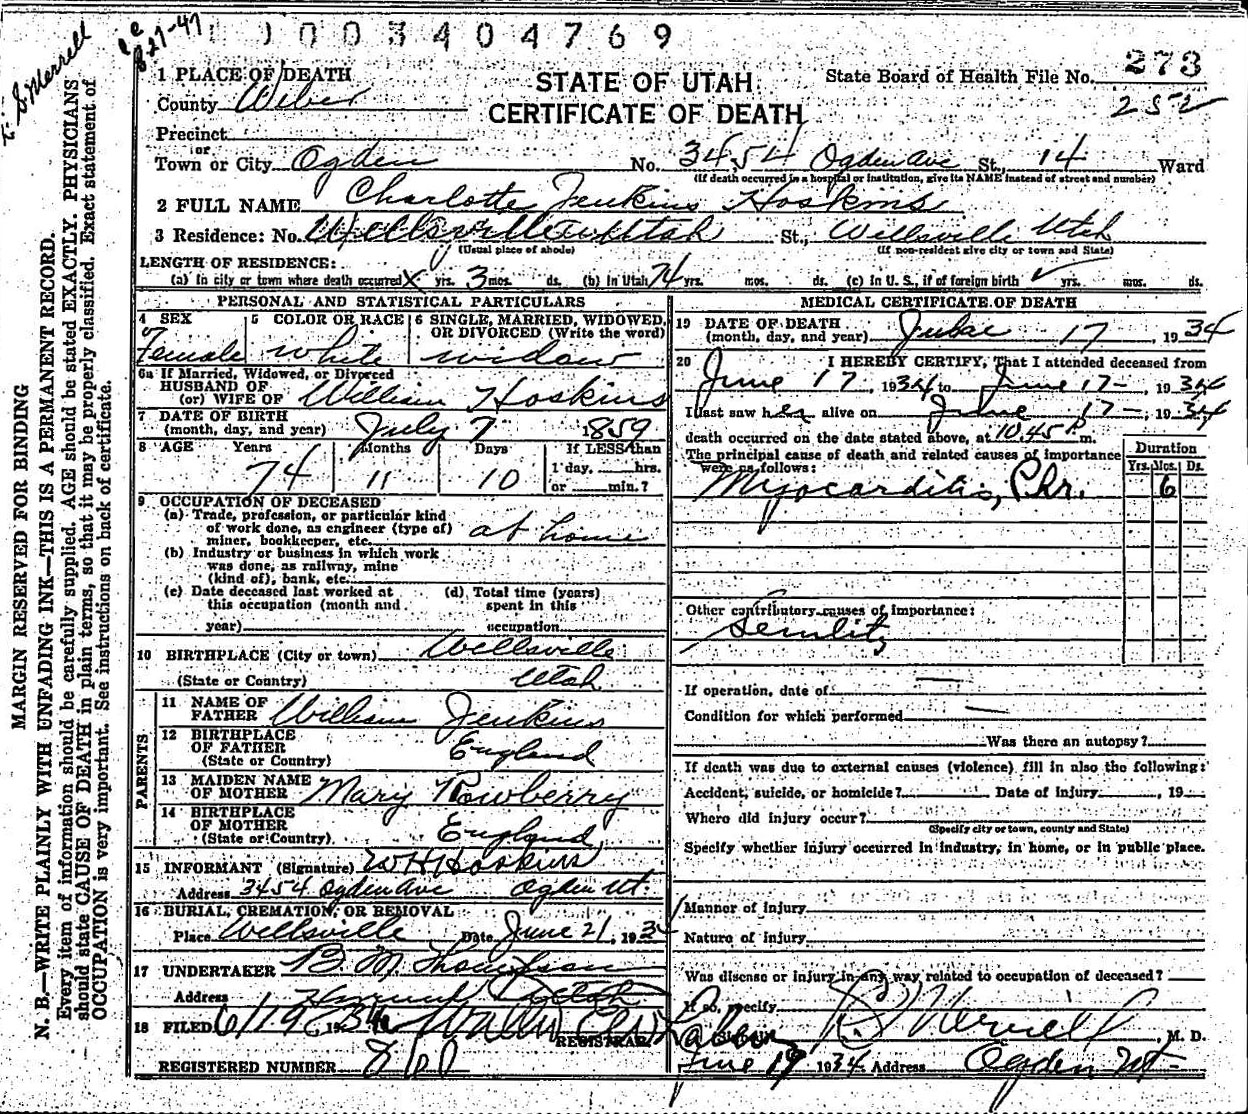 1003404769
le
8-27-47
L. S. Merrell
273
252
1 PLACE OF DEATH
STATE OF UTAH
CERTIFICATE OF DEATH
State Board of Health File No.
County Weber
Precinct
or
Town or City Ogden No. 3454 Ogden Ave St., 14 Ward
(If death occurred in a hospital or institution, give its NAME instead of street and number)
2 FULL NAME Charlotte Jenkins Hoskins
3 Residence: No. Wellsville Utah St., Wellsville Utah
(Usual place of abode) (If non-resident give city or town and State)
LENGTH OF RESIDENCE:
(a) In city or town where death occurred X yrs. 3 mos. ds. (b) In Utah 74 yrs. mos. ds. (c) In U. S., if of foreign birth ✓ yrs. mos. ds.
PERSONAL AND STATISTICAL PARTICULARS
4 SEX 5 COLOR OR RACE 6 SINGLE, MARRIED, WIDOWED, OR DIVORCED (Write the word)
Female white widow
6a If Married, Widowed, or Divorced
HUSBAND OF
(or) WIFE OF William Hoskins
7 DATE OF BIRTH
(month, day, and year) July 7 1859
8 AGE Years Months Days If LESS than
74 11 10 1 day, hrs.
or min.?
9 OCCUPATION OF DECEASED
(a) Trade, profession, or particular kind
of work done, as engineer (type of)
miner, bookkeeper, etc. at home
(b) Industry or business in which work
was done, as railway, mine
(kind of), bank, etc.
(c) Date deceased last worked at
this occupation (month and
year)
(d) Total time (years)
spent in this
occupation
10 BIRTHPLACE (City or town) Wellsville
(State or Country) Utah
PARENTS
11 NAME OF
FATHER William Jenkins
12 BIRTHPLACE
OF FATHER England
(State or Country)
13 MAIDEN NAME
OF MOTHER Mary Rowberry
14 BIRTHPLACE
OF MOTHER England
(State or Country)
15 INFORMANT (Signature) W H Hoskins
Address 3454 Ogden Ave Ogden Ut.
16 BURIAL, CREMATION, OR REMOVAL
Place Wellsville Date June 21, 1934
17 UNDERTAKER B M Thompson
Address Utah
18 FILED 6/19 1934
REGISTRAR
REGISTERED NUMBER
MEDICAL CERTIFICATE OF DEATH
19 DATE OF DEATH
(month, day, and year) June 17, 1934
20 I HEREBY CERTIFY, That I attended deceased from
June 17, 1934 to June 17-, 1934
I last saw her alive on June 17-, 1934
death occurred on the date stated above, at 10.45 P m.
The principal cause of death and related causes of importance
were as follows:
Duration
Yrs. Mos. Ds.
Myocarditis, Chr. 6
Other contributory causes of importance:
Senility
If operation, date of —
Condition for which performed —
Was there an autopsy?
If death was due to external causes (violence) fill in also the following:
Accident, suicide, or homicide? Date of injury , 19
Where did injury occur?
(Specify city or town, county and State)
Specify whether injury occurred in industry, in home, or in public place.
Manner of injury
Nature of injury
Was disease or injury in any way related to occupation of deceased?
If so, specify
Merrell, M. D.
June 19 1934 Address Ogden Ut-
MARGIN RESERVED FOR BINDING
N. B.—WRITE PLAINLY WITH UNFADING INK—THIS IS A PERMANENT RECORD.
Every item of information should be carefully supplied. AGE should be stated EXACTLY. PHYSICIANS
should state CAUSE OF DEATH in plain terms, so that it may be properly classified. Exact statement of
OCCUPATION is very important. See instructions on back of certificate.